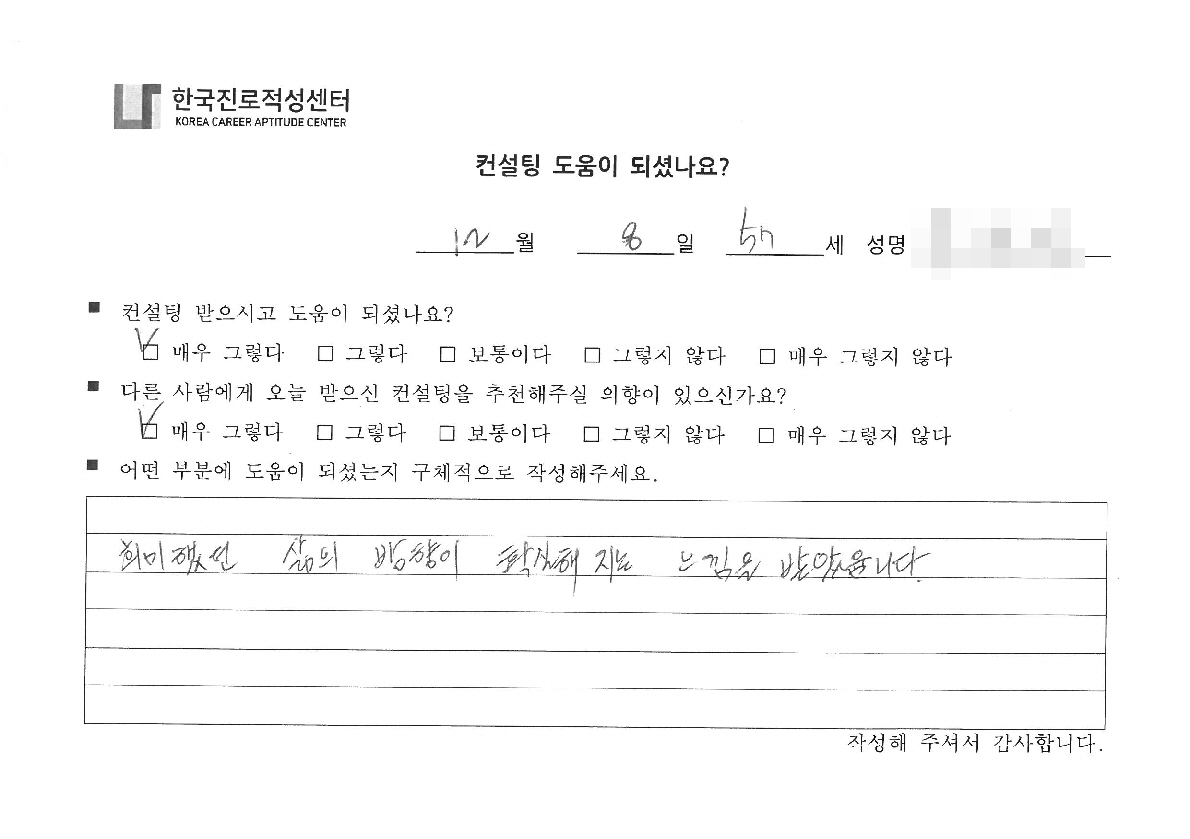 한국진로적성센터
KOREA CAREER APTITUDE CENTER
컨설팅 도움이 되셨나요?
12월 8일 57세 성명
■ 컨설팅 받으시고 도움이 되셨나요?
☑ 매우 그렇다 □ 그렇다 □ 보통이다 □ 그렇지 않다 □ 매우 그렇지 않다
■ 다른 사람에게 오늘 받으신 컨설팅을 추천해주실 의향이 있으신가요?
☑ 매우 그렇다 □ 그렇다 □ 보통이다 □ 그렇지 않다 □ 매우 그렇지 않다
■ 어떤 부분에 도움이 되셨는지 구체적으로 작성해주세요.
희미했던 삶의 방향이 확실해 지는 느낌을 받았습니다.
작성해 주셔서 감사합니다.